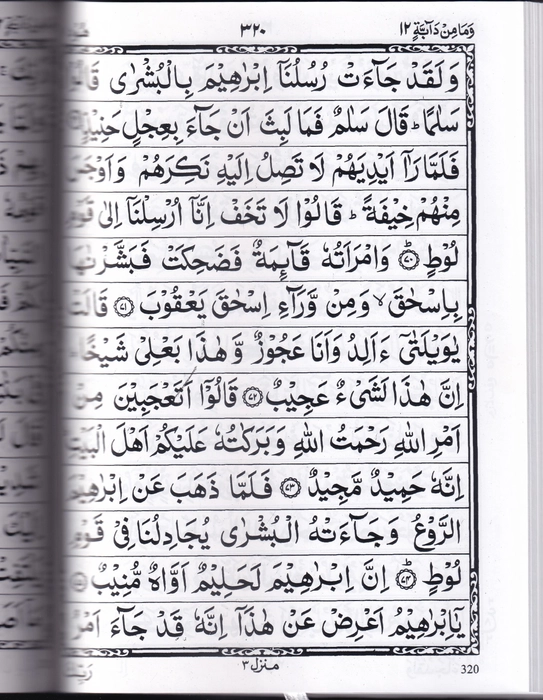 وَمَا مِنْ دَآبَّةٍ ١٢
٣٢٠
وَلَقَدْ جَآءَتْ رُسُلُنَآ اِبْرٰهِيْمَ بِالْبُشْرٰى
سَلٰمًا ؕ قَالَ سَلٰمٌ فَمَا لَبِثَ اَنْ جَآءَ بِعِجْلٍ حَنِيْذٍ
فَلَمَّا رَاٰۤ اَيْدِيَهُمْ لَا تَصِلُ اِلَيْهِ نَكِرَهُمْ وَاَوْجَسَ
مِنْهُمْ خِيْفَةً ؕ قَالُوْا لَا تَخَفْ اِنَّآ اُرْسِلْنَآ اِلٰى قَوْمِ
لُوْطٍ ﴿٧٠﴾ وَامْرَاَتُهٗ قَآئِمَةٌ فَضَحِكَتْ فَبَشَّرْنٰهَا
بِاِسْحٰقَ ۙ وَمِنْ وَّرَآءِ اِسْحٰقَ يَعْقُوْبَ ﴿٧١﴾ قَالَتْ
يٰوَيْلَتٰٓى ءَاَلِدُ وَاَنَا عَجُوْزٌ وَّهٰذَا بَعْلِيْ شَيْخًا
اِنَّ هٰذَا لَشَيْءٌ عَجِيْبٌ ﴿٧٢﴾ قَالُوْٓا اَتَعْجَبِيْنَ مِنْ
اَمْرِ اللّٰهِ رَحْمَتُ اللّٰهِ وَبَرَكٰتُهٗ عَلَيْكُمْ اَهْلَ الْبَيْتِ
اِنَّهٗ حَمِيْدٌ مَّجِيْدٌ ﴿٧٣﴾ فَلَمَّا ذَهَبَ عَنْ اِبْرٰهِيْمَ
الرَّوْعُ وَجَآءَتْهُ الْبُشْرٰى يُجَادِلُنَا فِيْ قَوْمِ
لُوْطٍ ﴿٧٤﴾ اِنَّ اِبْرٰهِيْمَ لَحَلِيْمٌ اَوَّاهٌ مُّنِيْبٌ
يٰٓاِبْرٰهِيْمُ اَعْرِضْ عَنْ هٰذَا اِنَّهٗ قَدْ جَآءَ اَمْرُ
منزل ٣
320